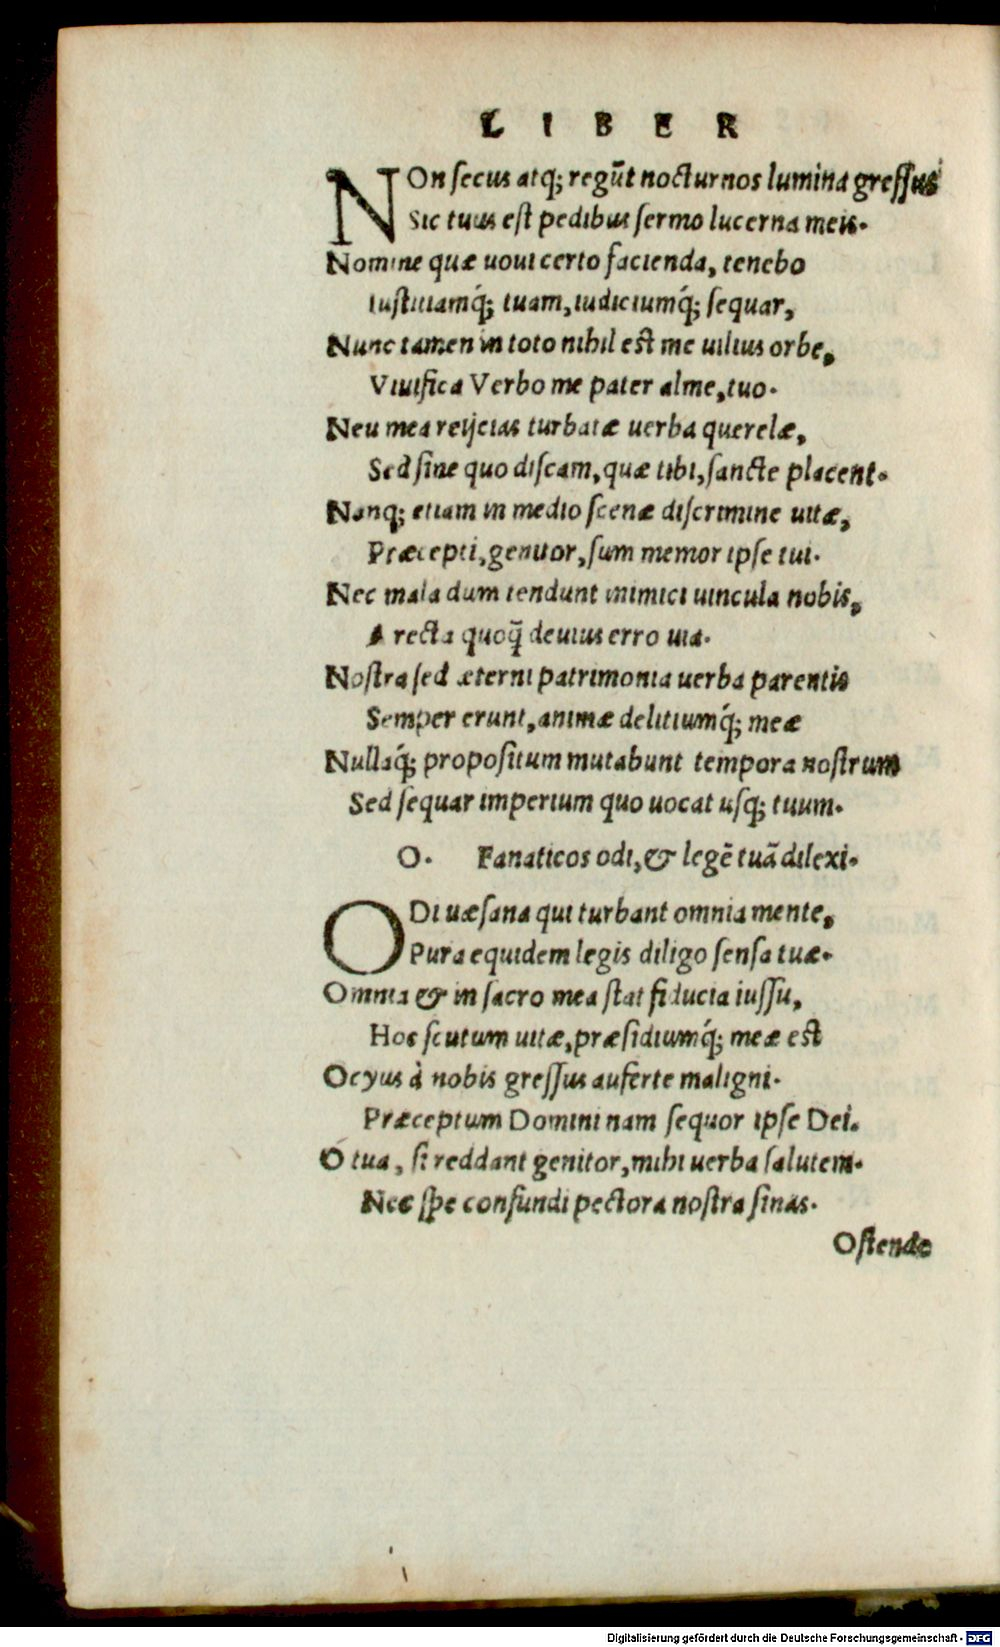 LIBER
NOn ſecus atq; regūt nocturnos lumina greſſus
Sic tuus eſt pedibus ſermo lucerna meis.
Nomine quæ uoui certo facienda, tenebo
Iuſtitiamq́; tuam, iudiciumq́; ſequar,
Nunc tamen in toto nihil eſt me uilius orbe,
Viuifica Verbo me pater alme, tuo.
Neu mea reijcias turbatæ uerba querelæ,
Sed ſine quo diſcam, quæ tibi, ſancte placent.
Nanq; etiam in medio ſcenæ diſcrimine uitæ,
Præcepti, genitor, ſum memor ipſe tui.
Nec mala dum tendunt inimici uincula nobis,
A recta quoq̃ deuius erro uia.
Noſtra ſed æterni patrimonia uerba parentis
Semper erunt, animæ delitiumq́; meæ
Nullaq́; propoſitum mutabunt tempora noſtrum
Sed ſequar imperium quo uocat uſq; tuum.
O. Fanaticos odi, & legē tuā dilexi.
ODi uæſana qui turbant omnia mente,
Pura equidem legis diligo ſenſa tuæ.
Omnia & in ſacro mea ſtat fiducia iuſſu,
Hoc ſcutum uitæ, præſidiumq́; meæ eſt
Ocyus à nobis greſſus auferte maligni.
Præceptum Domini nam ſequor ipſe Dei.
O tua, ſi reddant genitor, mihi uerba ſalutem.
Nec ſpe confundi pectora noſtra ſinas.
Oſtende
Digitalisierung gefördert durch die Deutsche Forschungsgemeinschaft - DFG